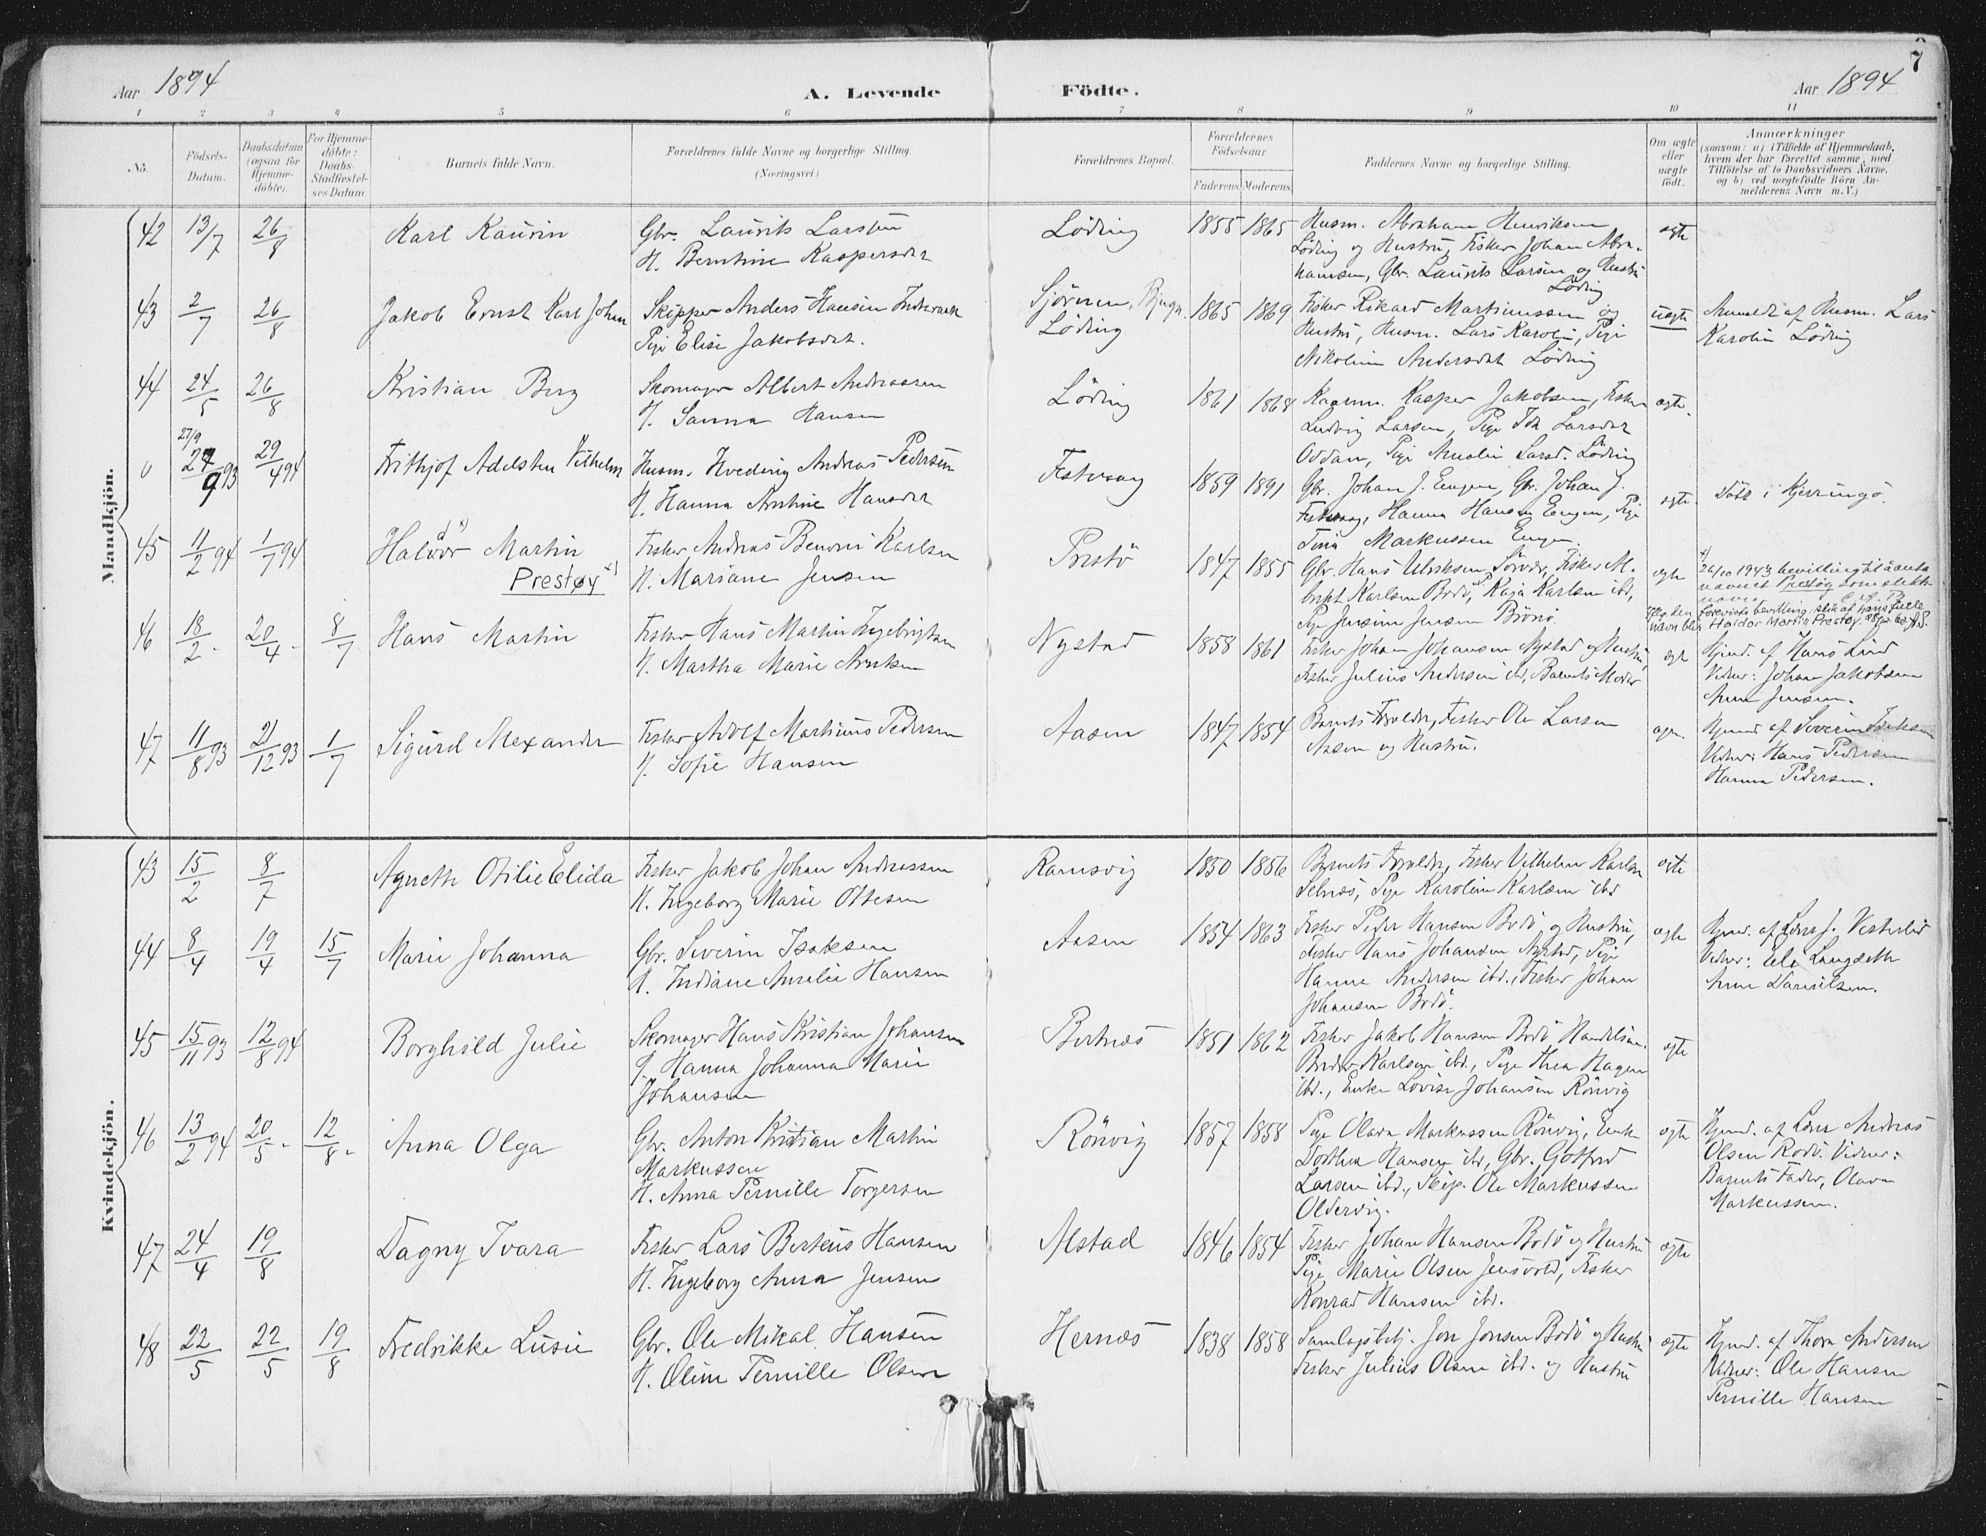 Aar 1894
A. Levende
Födte.
Aar 1894
7
1 2 3 4 5 6 7 8 9 10 11
No.
Födsels-
Datum.
Daabsdatum
(ogsaa for
Hjemme-
döbte).
For Hjemme-
döbte:
Daabs-
Stadfæstel-
ses Datum.
Barnets fulde Navn.
Forældrenes fulde Navne og borgerlige Stilling.
(Næringsvei.)
Forældrenes Bopæl.
Forældrenes
Födselsaar.
Faderens. Moderens.
Faddernes Navne og borgerlige Stilling.
Om ægte
eller
uægte
födt.
Anmærkninger
(saasom: a) i Tilfælde af Hjemmedaab,
hvem der har forrettet samme, med
Tilföielse af to Daabsvidners Navne,
og b) ved uægtefödte Börn An-
melderens Navn m. V.)
Mandkjön.
42 13/7 26/8 Karl Kaurin
Gbr. Laurits Larsen
H. Berntine Kaspersdat
Löding 1855 1865
Husm. Abraham Henriksen
Löding og Hustru, Fisker Johan Abra-
hamsen, Gbr. Laurits Larsen og Hustru
Löding
ægte
43 2/7 26/8 Jakob Ernst Karl Johan
Skipper Anders Hansen
Pige Elise Jakobsdat.
Löding 1865 1869
Fisker Rikard Martinussen og
Hustru, Husm. Lars Karoli, Pige
Nikoline Andersdat Löding
uægte
Anmeldt af Husm. Lars
Karoli Löding
44 24/5 26/8 Kristian Berg
Skomager Albert Andreassen
H. Sanna Hansen
Löding 1861 1868
Kasper Jakobsen, Fisker
Ludvig Larsen, Pige Ida Larsdat
Oddan, Pige Larsd. Löding
ægte.
0 27/9 27/9 93 29/4 94 Frithjof Adelsten Vilhelm
Husm. Andreas Pedersen
H. Hanna Arntine Hansdat
Festvaag 1859 1891
Gbr. Johan J. Engen, Gbr. Johan J.
Festvaag, Hanna Hansen Engen, Pige
Tina Markussen Engen.
ægte.
Döbt i Kjerringö.
45 11/2 94 1/7 94 Halvor Martin
Prestøy
Fisker Andreas Benoni Karlsen
H. Mariane Jensen
Prestö 1847 1855
Gbr. Hans Ulriksen, Fisker Al-
bert Karlsen Bodö, Kaja Karlsen ibd,
Pige Jensine Jensen
ægte
26/10 1943 bevilling til å anta
navnet Prestøy som slekts-
navn.
Halvor Martin Prestøy.
46 18/2 - 20/4 - 8/7 Hans Martin
Fisker Hans Martin Ingebrigtsen
H. Martha Marie Arntsen
Nystad 1858 1861
Fisker Johan Johansen Nystad og Hustru,
Fisker Julius Andersen ibd, Barnets Moder
Hjmd. af Hans Lind
Vidner: Johan Jakobsen
Jensen.
47 11/8 93 21/12 93 1/7 Sigurd Alexander
Fisker Adolf Martinus Pedersen
H. Sofie Hansen
Aasen 1847 1854
Barnets Forældre, Fisker Ole Larsen
Aasen og Hustru.
Hjmd af Severin Isaksen
Vidner: Hans Pedersen
Hanna Pedersen.
Kvindekjön.
43 15/2 8/7 Agneth Otilie Elida
Fisker Jakob Johan Andreassen
H. Ingeborg Marie Ottesen
Ramsvig 1850 1856
Barnets Forældre, Fisker Vilhelm Karlsen
Selnæs, Pige Karoline Karlsen ibd
44 8/4 19/4 15/7 Marie Johanna
Gbr. Severin Isaksen
H. Indiane Amalie Hansen
Aasen 1854 1863
Fisker Peder Hansen Bodö og Hustru,
Fisker Hans Johansen Nystad, Pige
Hanna Andersen ibd., Fisker Johan
Johansen Bodö.
ægte
Hjmd. af Vesterlid
Vidner: Langseth
Danielsen.
45 15/11 93 12/8 94 Borghild Julie
Skomager Hans Kristian Johansen
H. Hanna Johanna Marie
Johansen
Bertnæs 1851 1862
Fisker Jakob Hansen Bodö Handelsm.
Karlsen ibd., Pige Thea Hagen
ibd., Enke Lovise Johansen Rönvig
ægte
46 13/2 94 20/5 - 12/8 - Anna Olga
Gbr. Anton Kristian Martin
Markussen
H. Anna Pernille Torgersen
Rönvig 1857 1858
Pige Olava Markussen Rönvig, Enke
Dorthea Hansen ibd, Gbr. Gotfred
Larsen ibd., Skip. Ole Markussen
Oldervig.
ægte
Hjmd. af Lærer Andreas
Olsen Vidner:
Barnets Fader, Olava
Markussen.
47 24/4 19/8 Dagny Ivara
Fisker Lars Berteus Hansen
H. Ingeborg Anna Jensen
Alstad 1846 1854
Fisker Johan Hansen Bodö og Hustru
Pige Marie Olsen Jensvold, Fisker
Konrad Hansen ibd.
ægte
48 22/5 22/5 19/8 Fredrikke Lusie
Gbr. Ole Mikal Hansen
H. Oline Pernille Olsen
Hernæs 1838 1858
Samlagsbetj. Jon Jonsen Bodö og Hustru
Fisker Julius Olsen ibd. og Hustru
ægte
Hjmd. af Thora Andersen
Vidner: Ole Hansen
Pernille Hansen